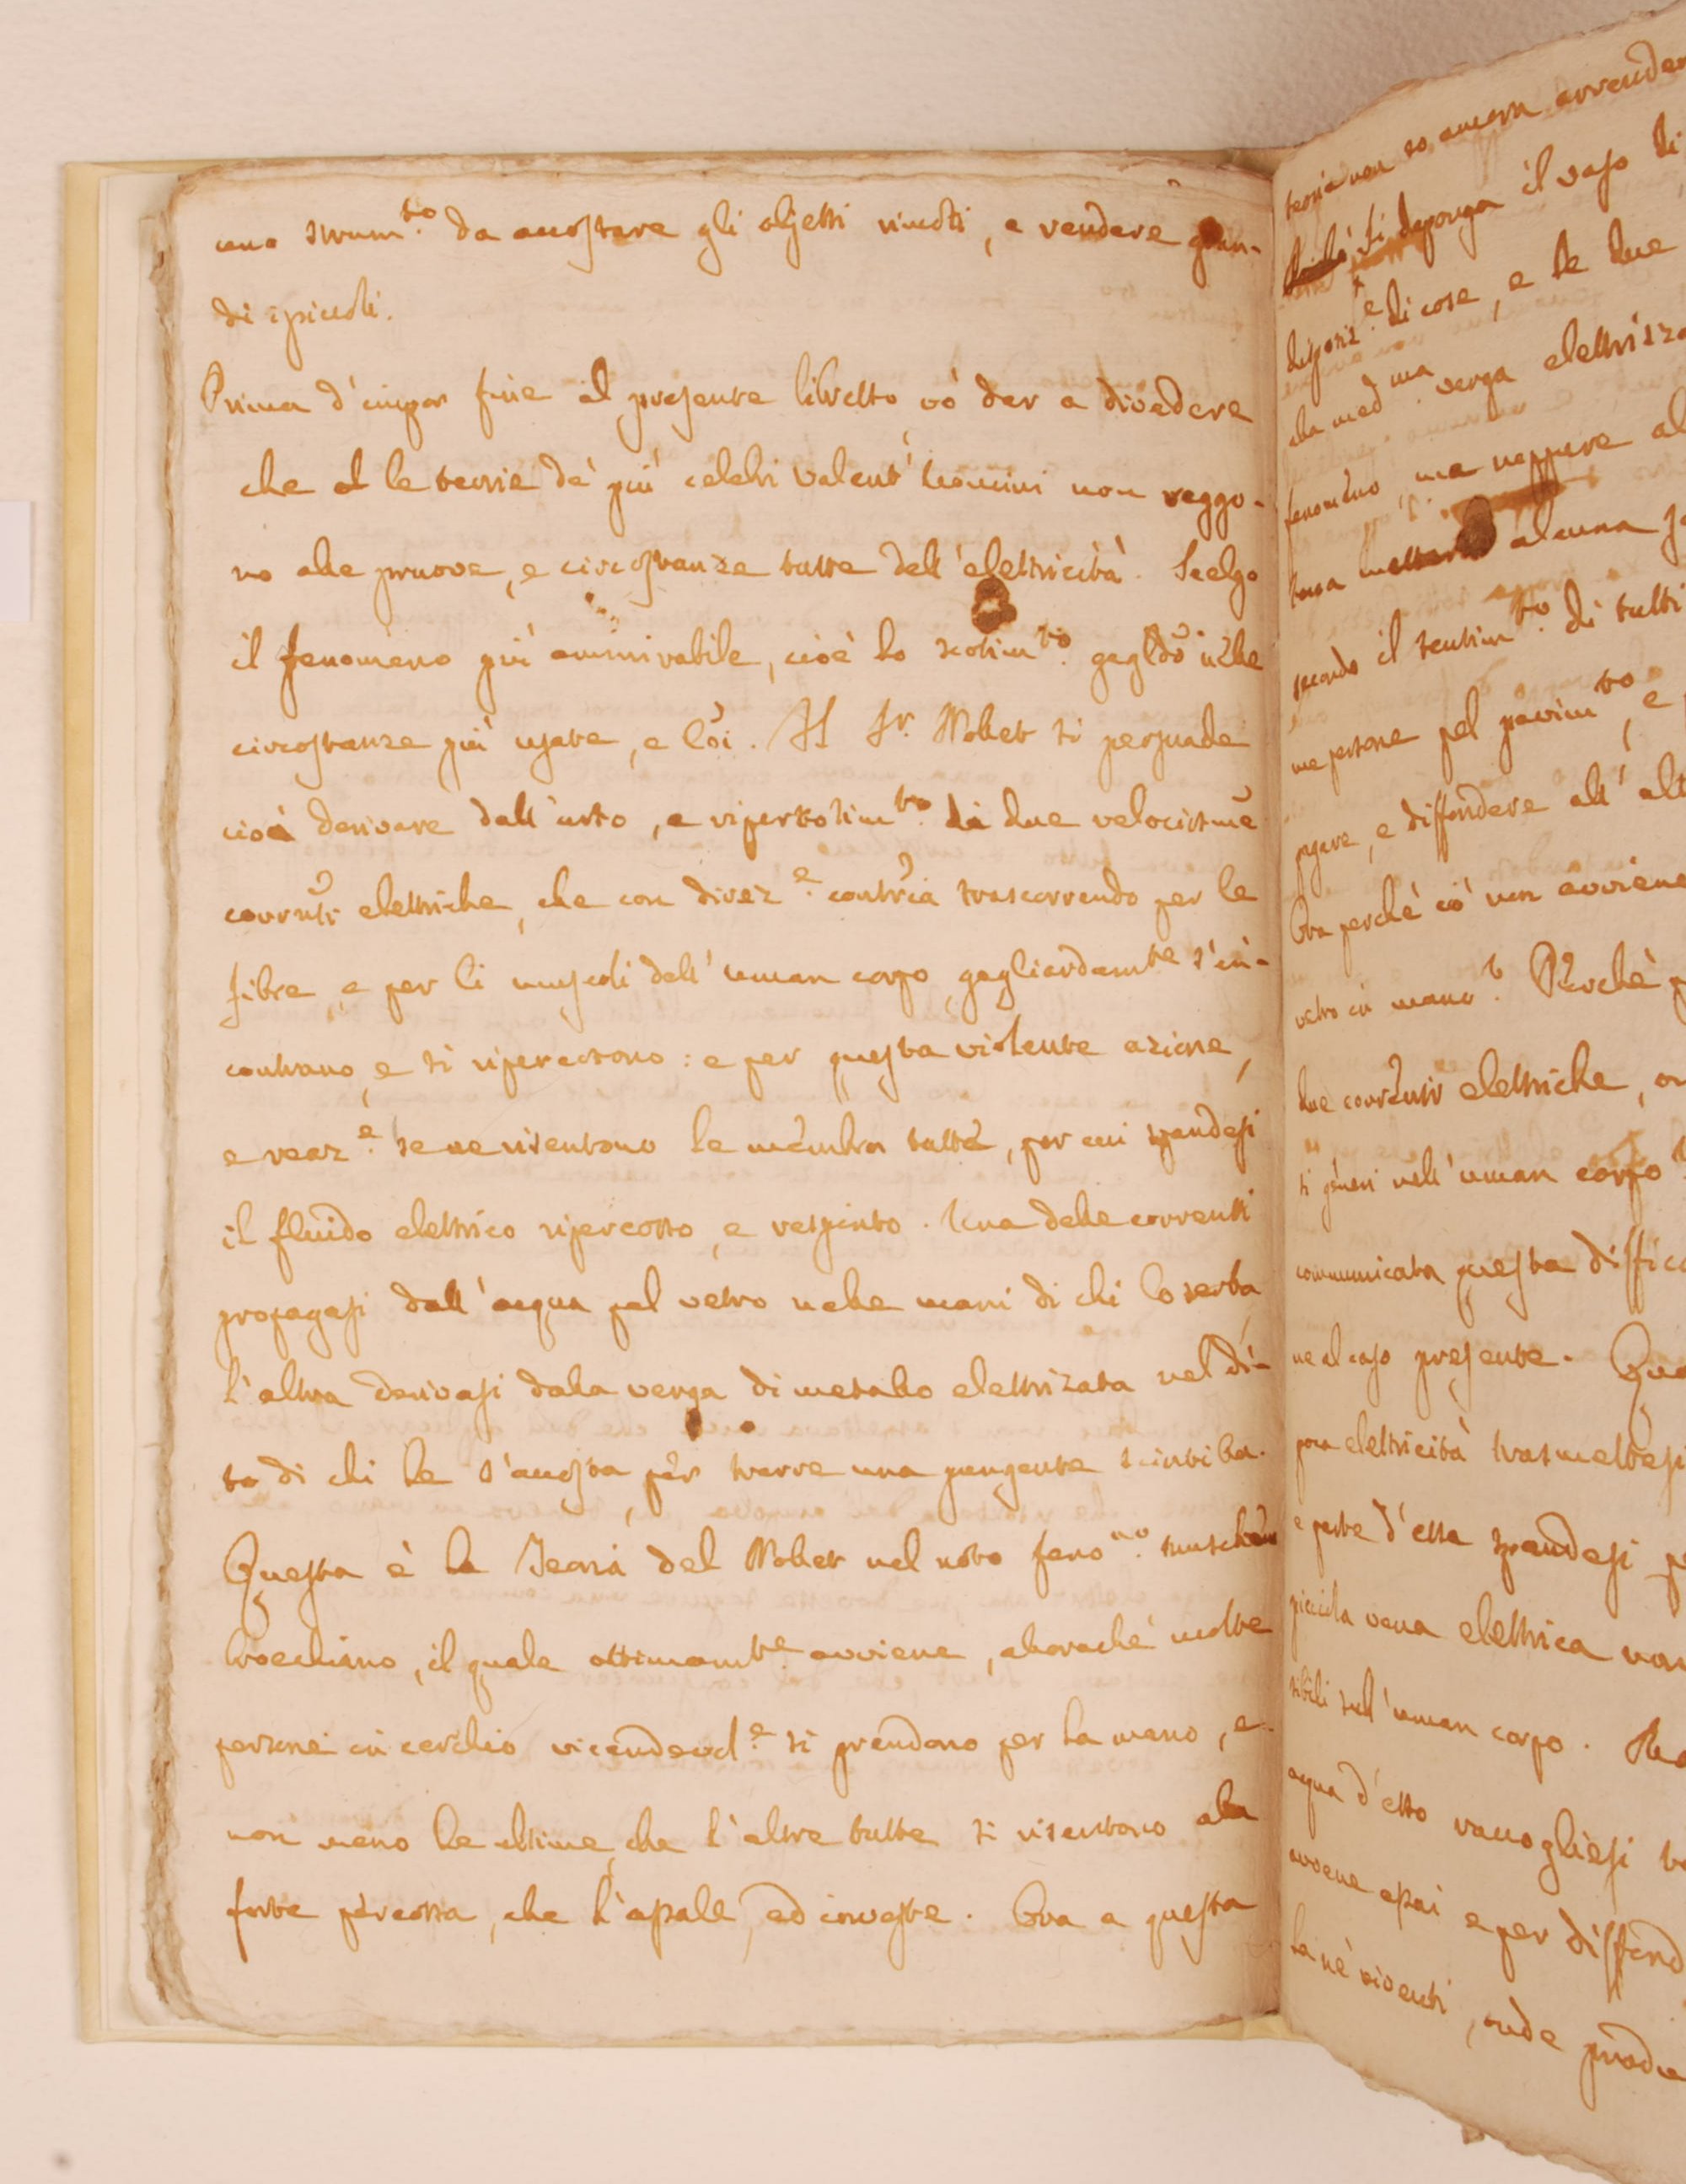 uno strum.to da accostare gli objetti rimoti, e rendere gran-
di i piccoli.
Prima d'impor fine al presente libretto vò dar a divedere
che al le teorie de' più celebri valent'huomini non reggo-
no alle pruove, e circostanze tutte dell'elettricità. Scelgo
il fenomeno più ammirabile, cioè lo scotim.to
circostanze più usate, e Il Sr. Nollet si persuade
cioè derivare dall'urto, e ripercotim.to di due velocissme
correnti elettriche, che con direz.e contrria trascorrendo per le
fibre, e per li muscoli dell'uman corpo, gagliardamte s'in-
contrano, e si ripercotono: e per questa violente azione,
e reaz.e se ne risentono le membra tutte, per cui spandesi
il fluido elettrico ripercosso, e respinto. Una delle correnti
propagasi dall'acqua pel vetro nelle mani di chi lo serba
L'altra derivasi dalla verga di metallo elettrizata nel di-
to di chi le s'accosta per trarre una pungente scintilla.
Questa è la Teoria del Nollet nel noto feno.no muschem
broechiano, il quale ottimamte. avviene, allorachè molte
persone in cerchio vicendevol.e si prendono per la mano, e
non meno le ultime, che l'altre tutte si risentono alla
forte percossa, che l'assale, ed investe. Ora a questa
teoria non so ancora arrender
si deponga il vaso di
disposiz.e di cose, e le due
alla med.ma verga elettrizza
fenomeno, ma neppure al
alcuna
secondo il sentim.to di tutti
me persone pel pavim.to, e
pagare, e diffondere all' alt
Ora perchè ciò non avviene
vetro in mano? Perchè
due correnti elettriche, on
si generi nell'uman corpo?
communicata questa diffico
ne al caso presente. Qua
poca elettricità trasmettesi
e parte d'essa spandesi p
picciola vena elettrica non
sibili sul'uman corpo.
aqua d'esso raccogliesi
avvene assai e per diffond
la nè viventi, onde produ